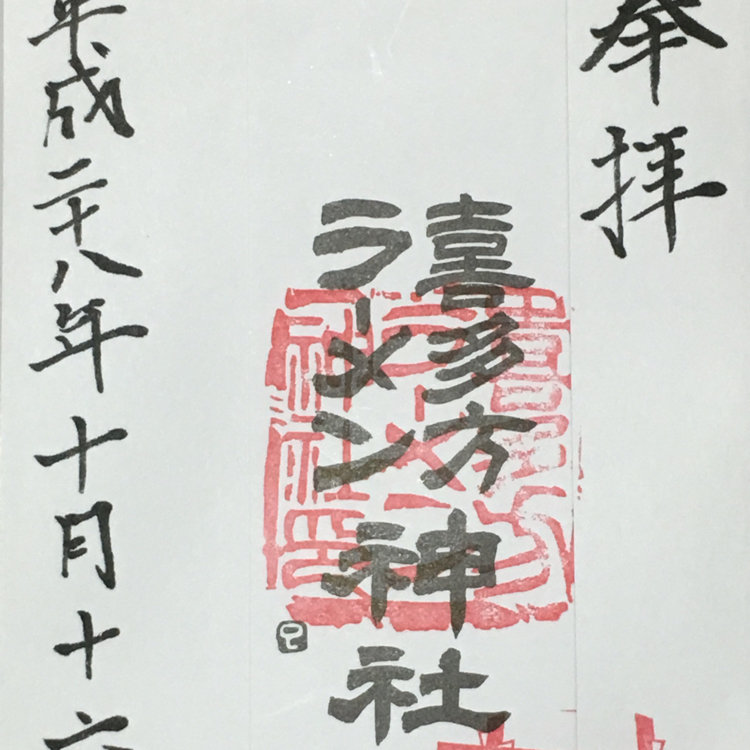 奉拝
喜多方
ラーメン
神社
平成二十八年十月十六